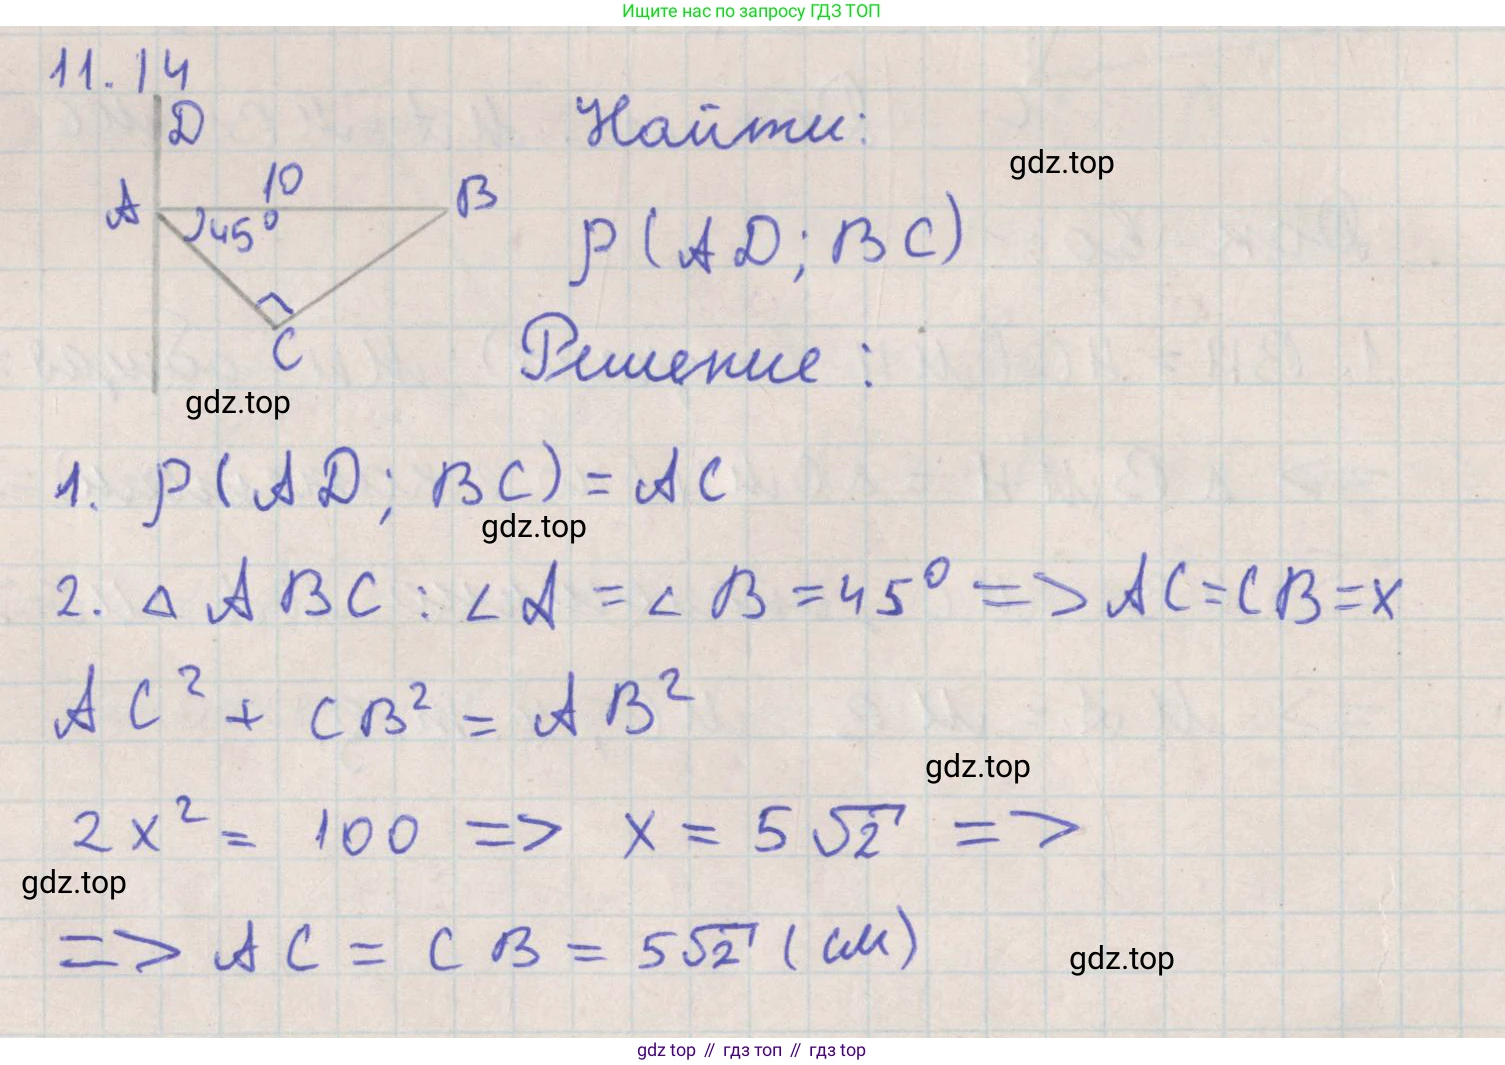 Ищите нас по запросу ГДЗ ТОП
11.14
D
Найти:
gdz.top
10
A
B
45°
ρ(AD; BC)
C
Решение:
gdz.top
1. ρ(AD; BC) = AC
gdz.top
2. △ ABC : ∠A = ∠B = 45° => AC = CB = x
AC² + CB² = AB²
gdz.top
2x² = 100 => x = 5√2 =>
gdz.top
=> AC = CB = 5√2 (см)
gdz.top
gdz top // гдз топ // гдз top